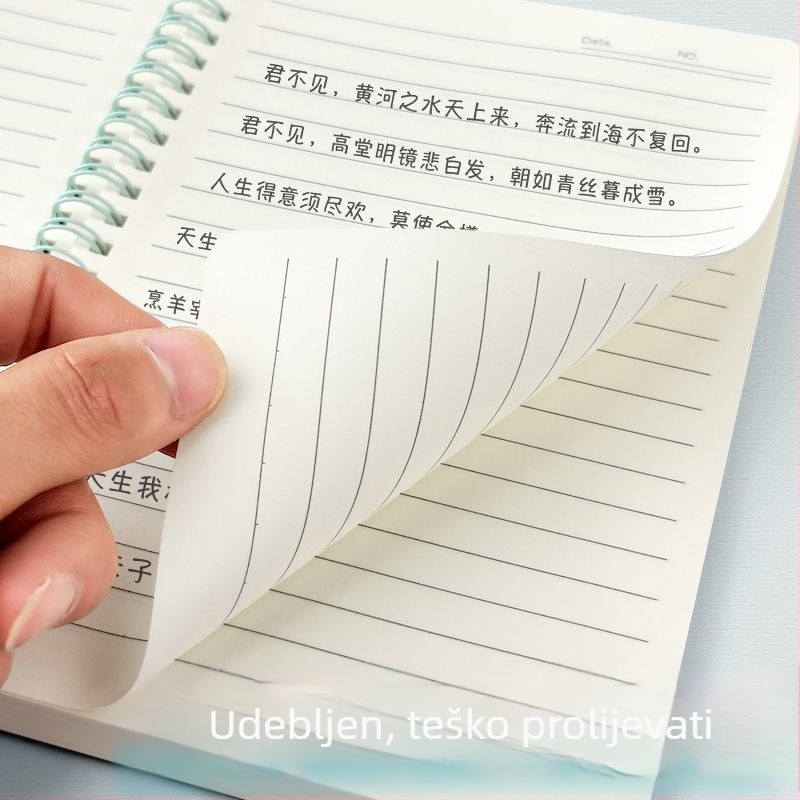 Date.
NO.
君不见，黄河之水天上来，奔流到海不复回。
君不见，高堂明镜悲白发，朝如青丝暮成雪。
人生得意须尽欢，莫使金樽
天生
烹羊宰
天生我
子
Udebljen, teško prolijevati